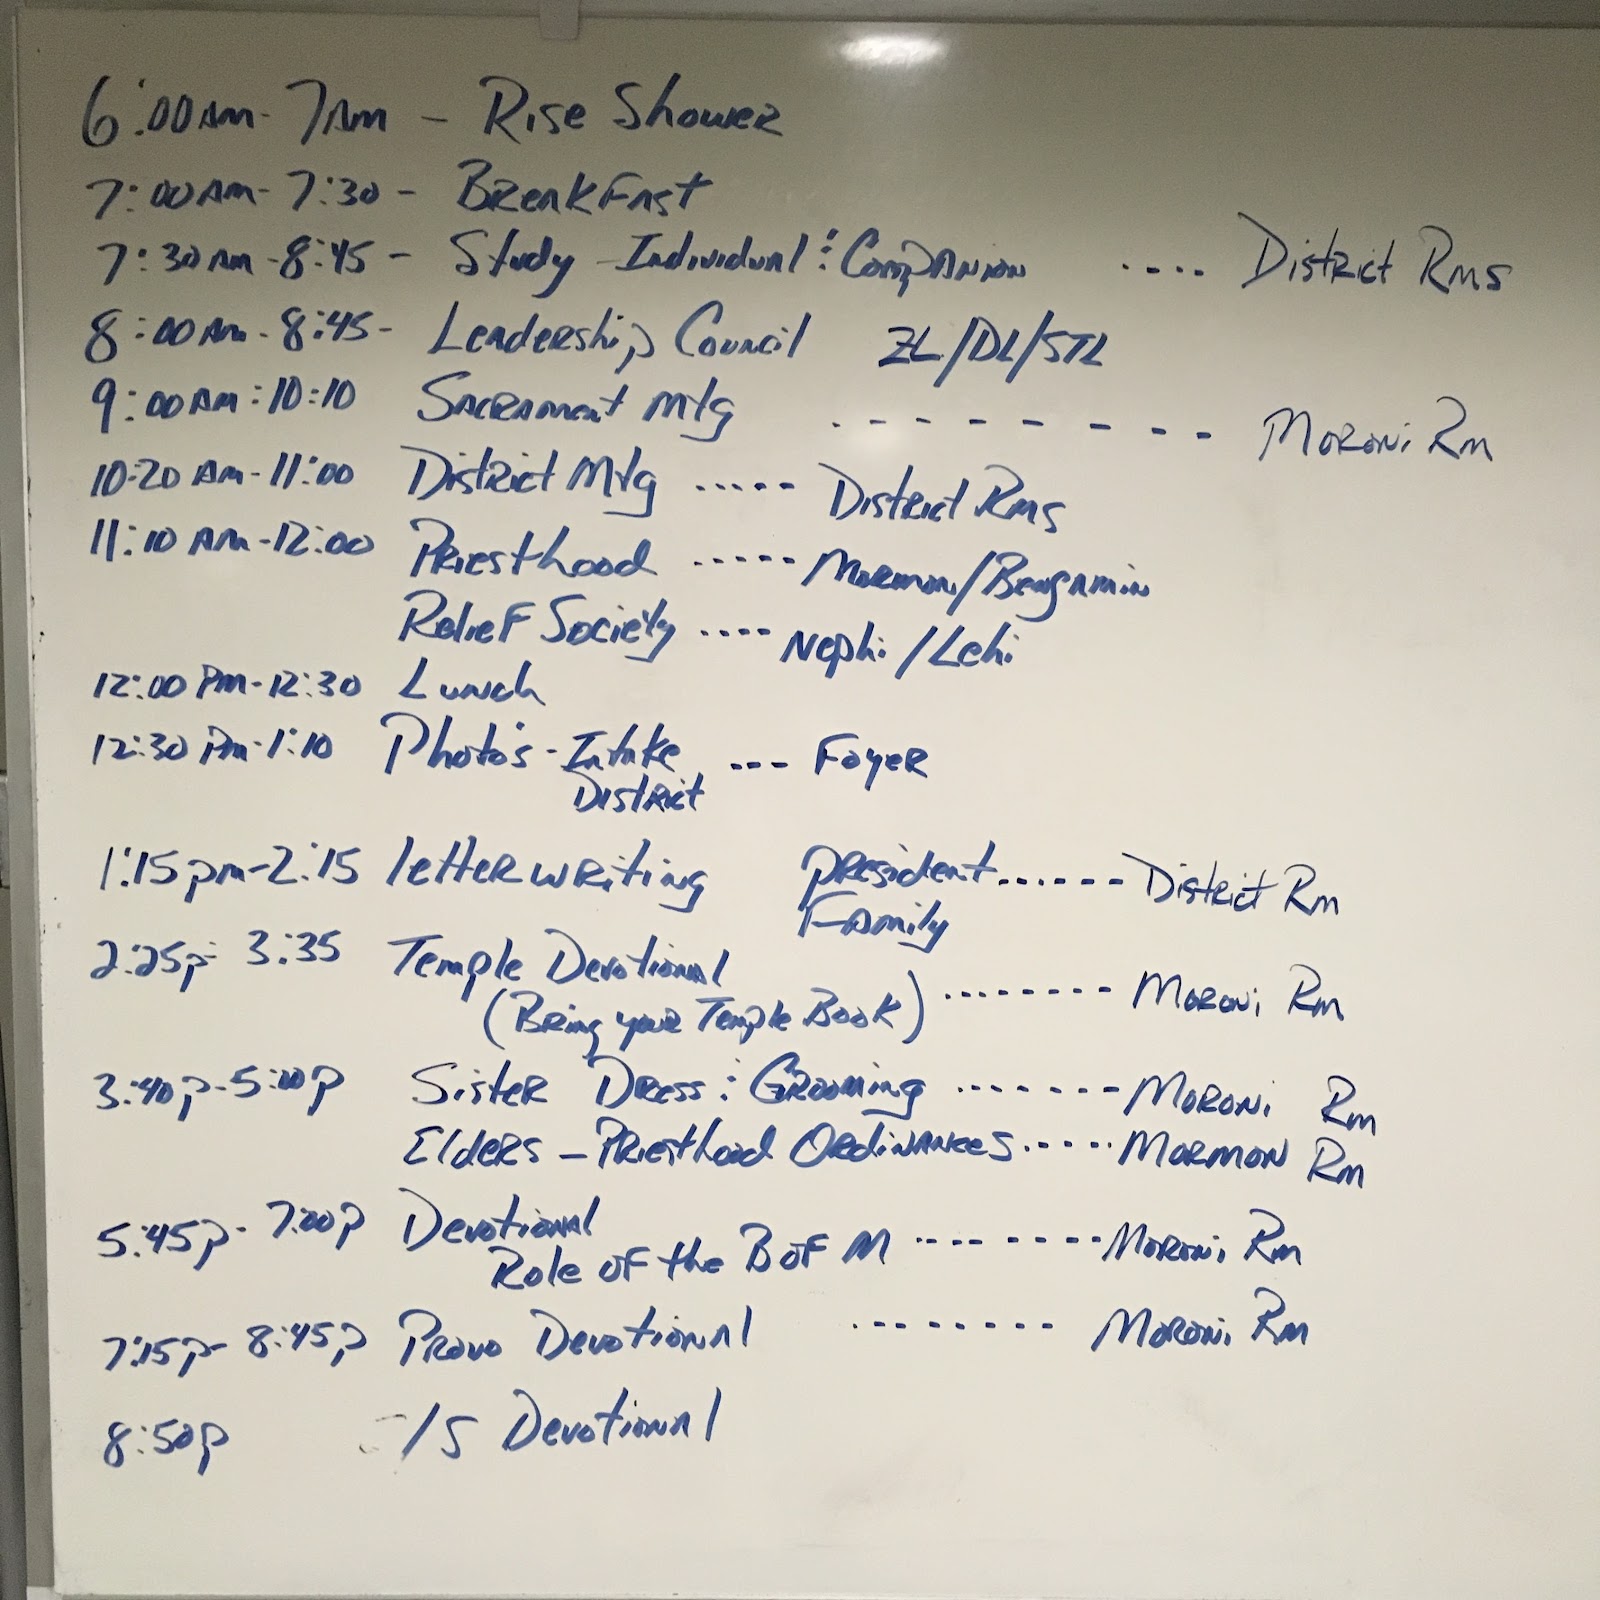 6:00AM - 7AM - Rise Shower
7:00AM - 7:30 - BreakFast
7:30AM - 8:45 - Study - Individual : Companion .... District Rms
8:00AM - 8:45 - Leadership Council ZL/DL/STL
9:00AM : 10:10 Sacrament Mtg . - - - - - - - Moroni Rm
10:20 AM - 11:00 District Mtg ..... District Rms
11:10 AM - 12:00 Priesthood ..... Mormon/Bengamin
Relief Society .... Nephi/Lehi
12:00 PM - 12:30 Lunch
12:30 PM - 1:10 Photo's - Intake --- Foyer
District
1:15pm - 2:15 letter writing President ...... District Rm
Family
2:25p - 3:35 Temple Devotional
(Bring your Temple Book) ........ Moroni Rm
3:40p - 5:00p Sister Dress : Grooming ....... Moroni Rm
Elders - Priesthood Ordinances ..... Mormon Rm
5:45p - 7:00p Devotional
Role of the B of M ......... Moroni Rm
7:15p - 8:45p Provo Devotional ........ Moroni Rm
8:50p /S Devotional